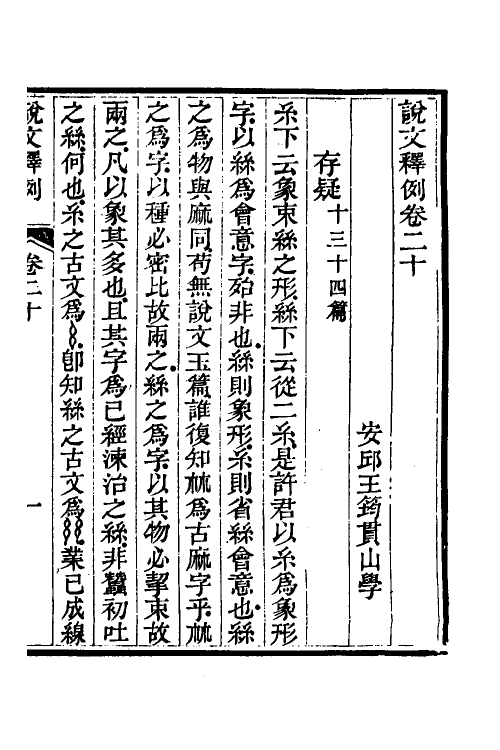 說文釋例卷二十
安邱王筠貫山學
存疑十三十四篇
糸下云象束絲之形絲下云從二糸是許君以糸爲象形
字以絲爲會意字殆非也絲則象形糸則省絲會意也絲
之爲物與麻同苟無說文玉篇誰復知𣏟爲古麻字乎𣏟
之爲字以種必密比故兩之絲之爲字以其物必挈束故
兩之凡以象其多也且其字爲已經湅治之絲非蠶初吐
之絲何也糸之古文爲𢆯卽知絲之古文爲𢆶業已成線
說文釋例 卷二十 一